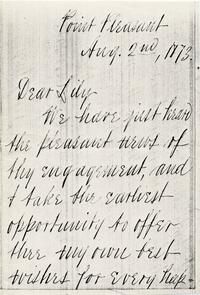 Point Pleasant
Aug. 2nd, 1873.
Dear Lily
We have just heard
the pleasant news of
thy engagement, and
I take the earliest
opportunity to offer
thee my own best
wishes for every hap-